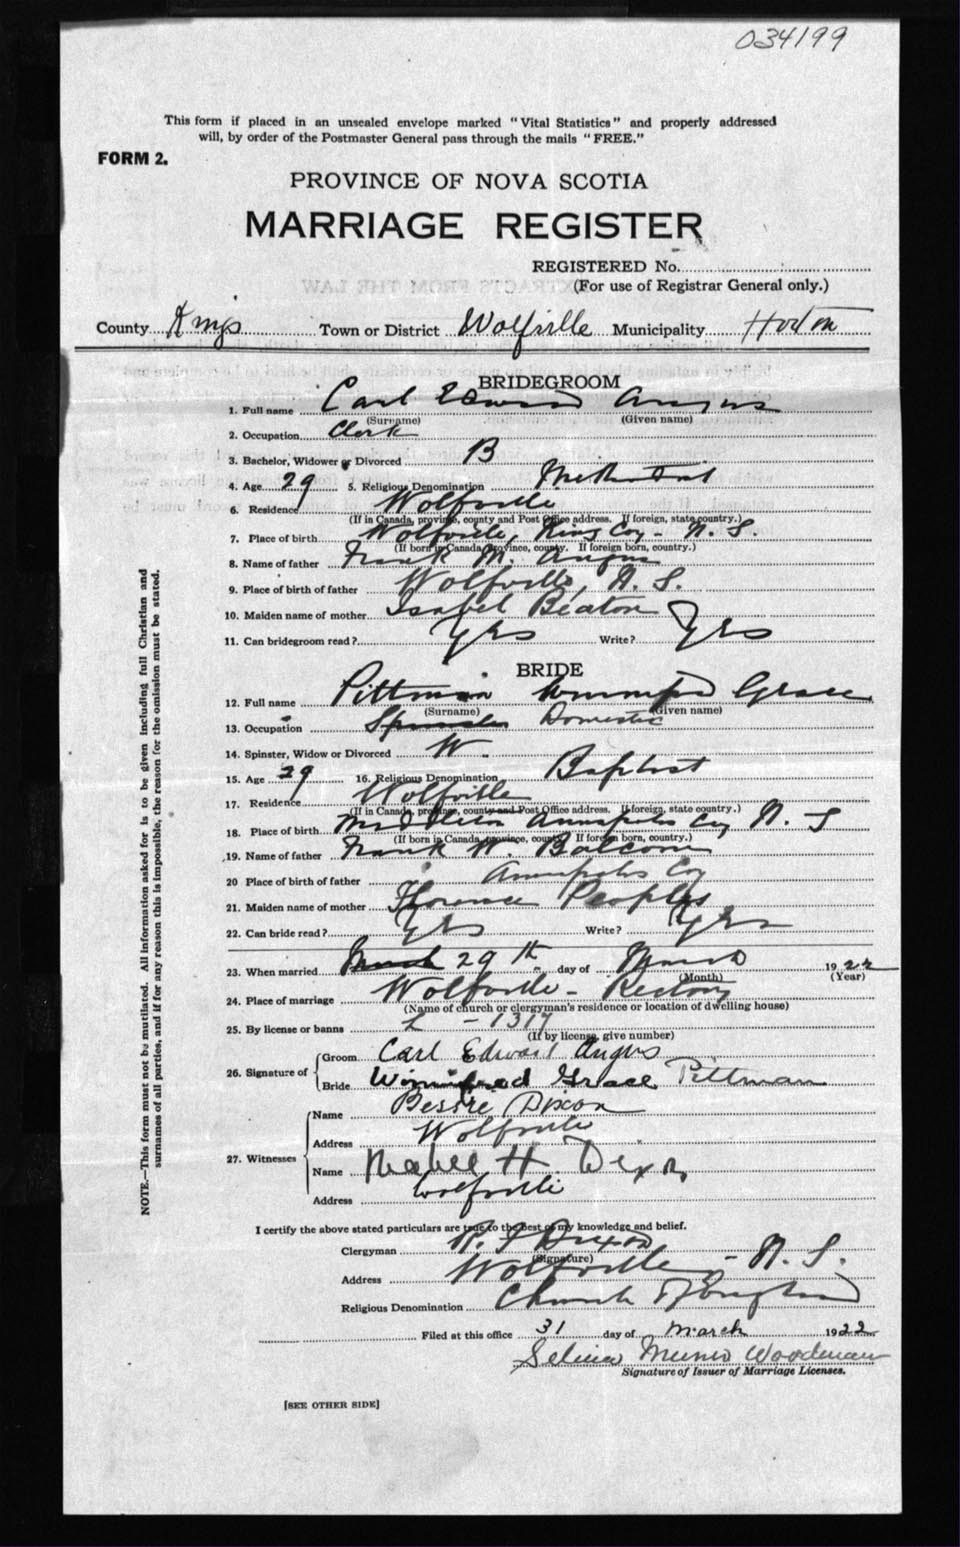 034199
This form if placed in an unsealed envelope marked "Vital Statistics" and properly addressed
will, by order of the Postmaster General pass through the mails "FREE."
FORM 2.
PROVINCE OF NOVA SCOTIA
MARRIAGE REGISTER
REGISTERED No.
(For use of Registrar General only.)
County Kings Town or District Wolfville Municipality Horton
BRIDEGROOM
1. Full name Carl Edward Angus
(Surname) (Given name)
2. Occupation Clerk
3. Bachelor, Widower or Divorced B
4. Age 29 5. Religious Denomination Methodist
6. Residence Wolfville
(If in Canada, province, county and Post Office address. If foreign, state country.)
7. Place of birth Wolfville, Kings Coy - N. S.
(If born in Canada, province, county. If foreign born, country.)
8. Name of father Frank M. Angus
9. Place of birth of father Wolfville, N. S.
10. Maiden name of mother Isabel Beaton
11. Can bridegroom read? Yes Write? Yes
BRIDE
12. Full name Pittman Grace
(Surname) (Given name)
13. Occupation Spinster Domestic
14. Spinster, Widow or Divorced W.
15. Age 29 16. Religious Denomination Baptist
17. Residence Wolfville
(If in Canada, province, county and Post Office address. If foreign, state country.)
18. Place of birth Middleton Annapolis Coy N. S
(If born in Canada, province, county. If foreign born, country.)
19. Name of father Frank W. Balcom
20 Place of birth of father Annapolis Coy
21. Maiden name of mother Florence Peoples
22. Can bride read? Yes Write? Yes
23. When married March 29th day of March 1922
(Month) (Year)
24. Place of marriage Wolfville - Rectory
(Name of church or clergyman's residence or location of dwelling house)
25. By license or banns L - 1317
(If by license, give number)
26. Signature of
Groom Carl Edward Angus
Bride Winnifred Grace Pittman
27. Witnesses
Name Bessie Dixon
Address Wolfville
Name Mabel H. Dixon
Address Wolfville
I certify the above stated particulars are true to the best of my knowledge and belief.
Clergyman R. F Dixon
(Signature)
Address Wolfville - N. S.
Religious Denomination Church of England
Filed at this office 31 day of March 1922
Selina Munro Woodman
Signature of Issuer of Marriage Licenses.
[SEE OTHER SIDE]
NOTE.—This form must not be mutilated. All information asked for is to be given including full Christian and
surnames of all parties, and if for any reason this is impossible, the reason for the omission must be stated.